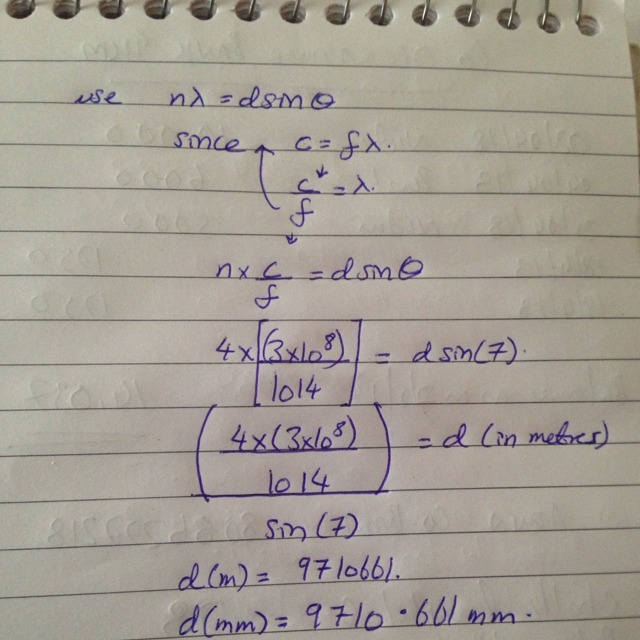 use nλ = dsinθ
since c = fλ.
c/f = λ.
n × c/f = dsinθ
4×[(3×10⁸)/1014] = dsin(7).
(4×(3×10⁸)/1014) = d (in metres)
sin(7)
d(m) = 9710661.
d(mm) = 9710.661 mm.